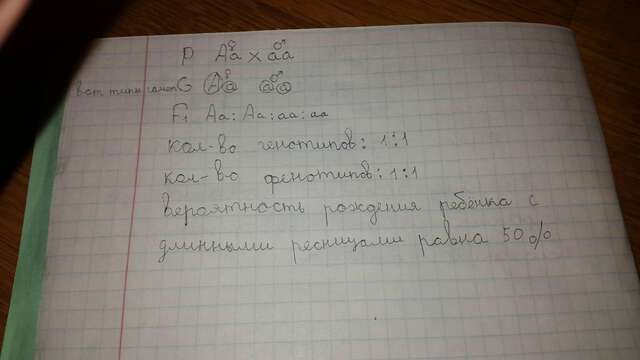 P Aa♀ x aa♂
все типы гамет G Aa♀ aa♂
F₁ Aa : Aa : aa : aa
кол-во генотипов : 1 : 1
кол-во фенотипов : 1 : 1
вероятность рождения ребенка с
длинными ресницами равна 50%